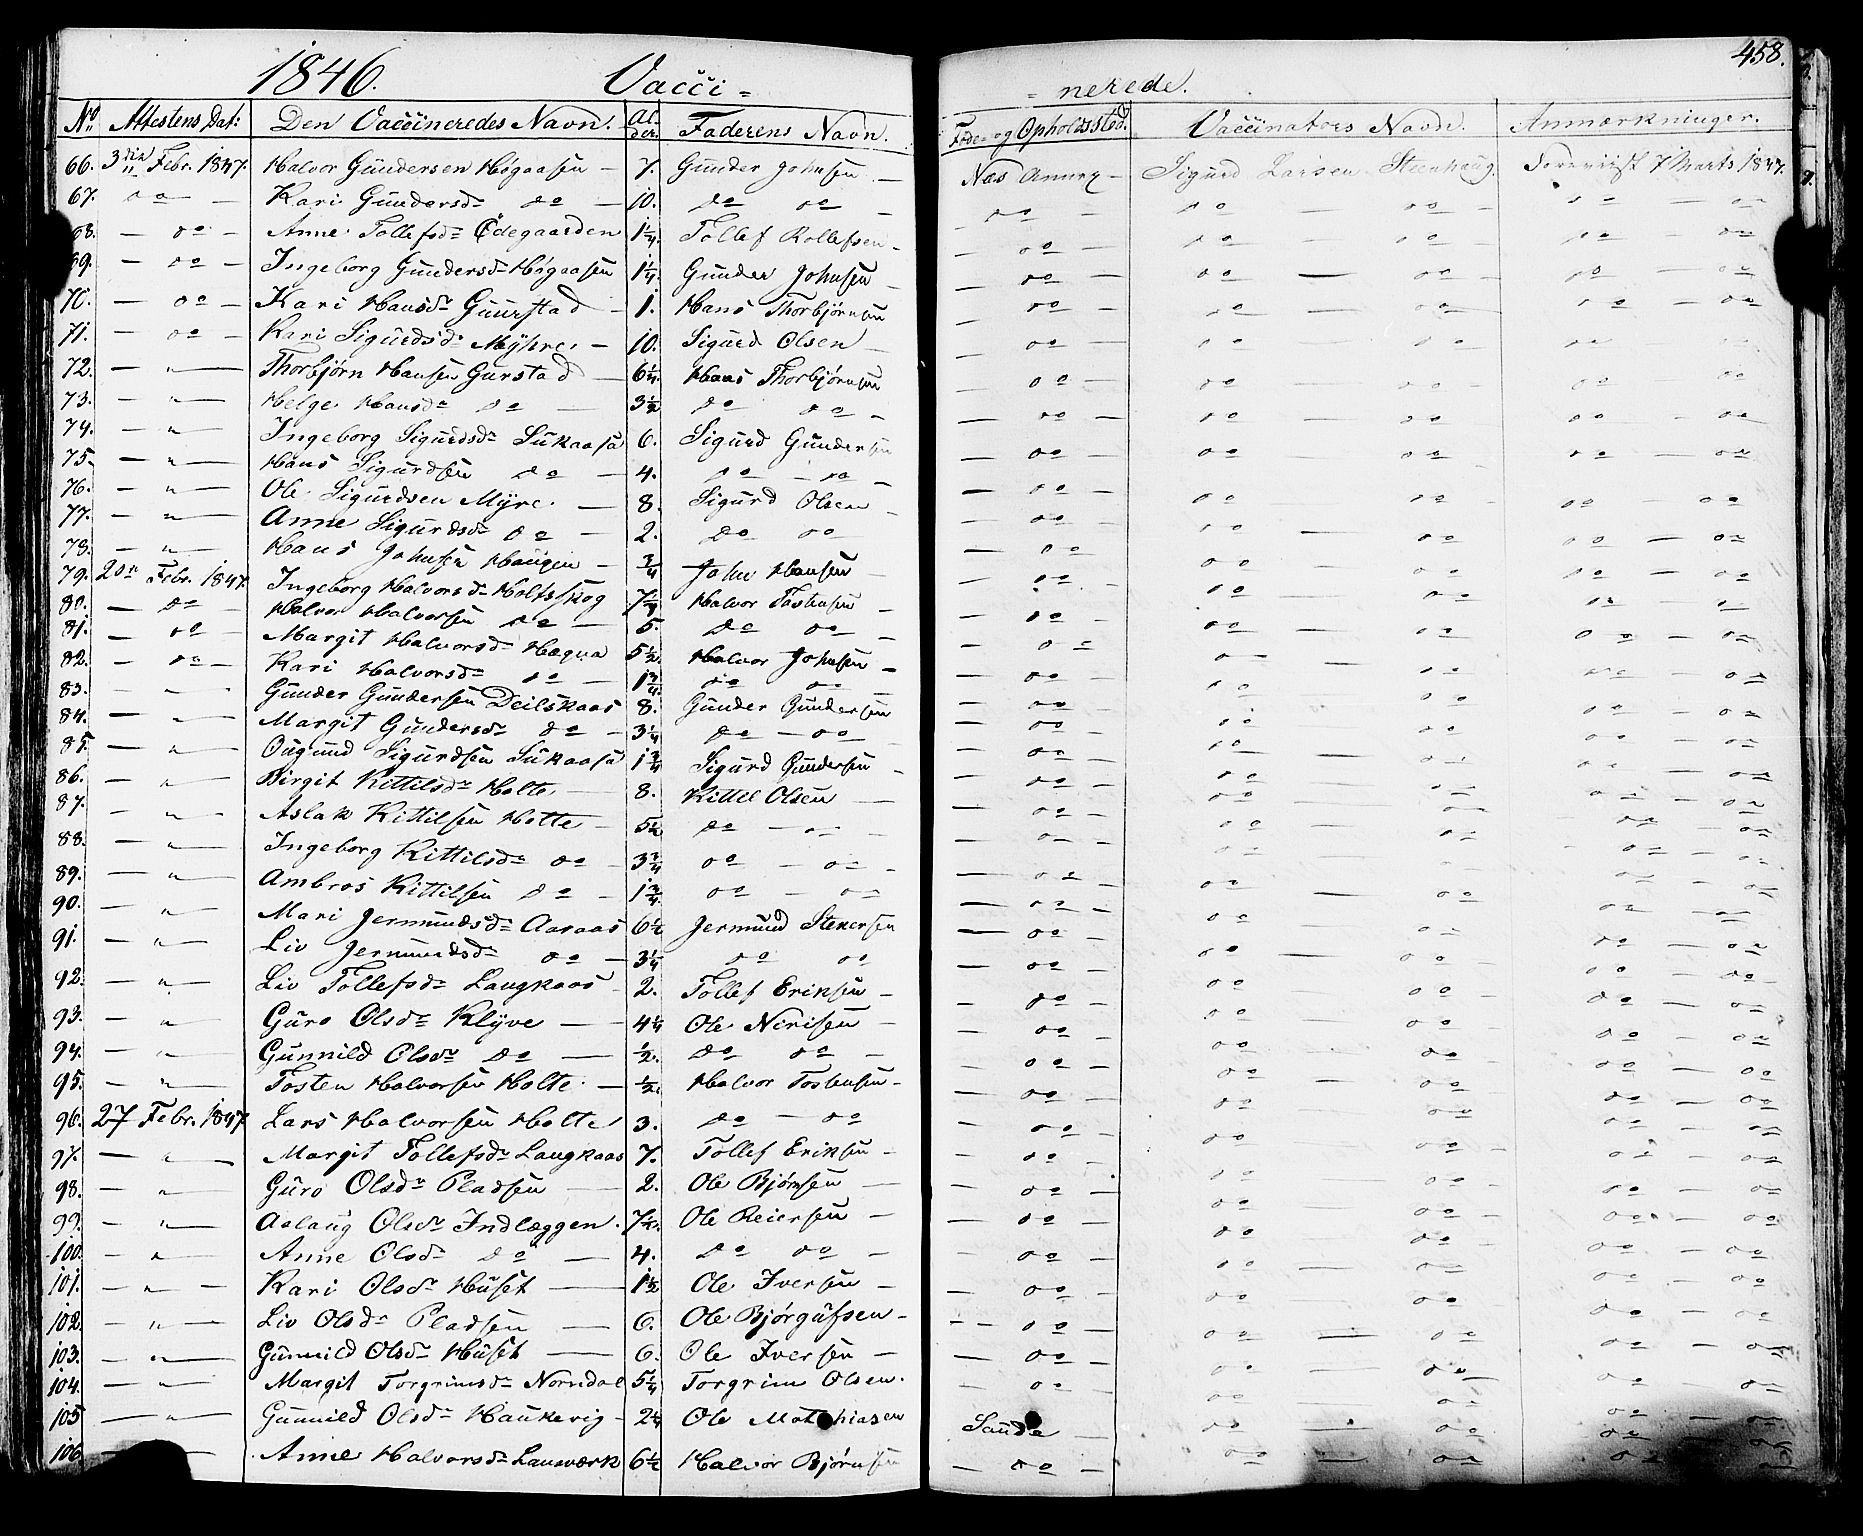 458.
1846. Vacci= =nerede.
No Attestens Dat: Den Vaccineredes Navn. Al-der. Faderens Navn. Føde- og Opholdssted. Vaccinators Navn. Anmærkninger.
66. 3die Febr. 1847. Halvor Gundersen Høgaasen — 7. Gunder Johnsen — Næs Annex — Sigurd Larsen Steenhaug. Foreviist 7 Marts 1847.
67. do — Kari Gundersdr do — 10. do do — do — do — do — do — do
68. — do — Anne Tollefsdr Ødegaarden 1 1/4. Tollef Rollefsen — do — do — do — do — do
69. — do — Ingeborg Gundersdr Høgaasen 1 1/4. Gunder Johnsen — do — do — do — do — do
70. — do — Kari Hansdr Guurstad — 1. Hans Thorbjørnsen — do — do — do — do — do
71. — do — Kari Sigurdsdr Myhre — 10. Sigurd Olsen — do — do — do — do — do
72. — " — Thorbjørn Hansen Gurstad — 6 1/4. Hans Thorbjørnsen — do — do — do — do — do
73. — " — Helge Hansdr do — 3 1/2 do do — do — do — do — do — do
74. — " — Ingeborg Sigurdsdr Sukaasa 6. Sigurd Gundersen — do — do — do — do — do
75. — " — Hans Sigurdsen do — 4. do — do — do — do — do — do — do
76. — " — Ole Sigurdsen Myre. — 8. Sigurd Olsen — do — do — do — do — do
77. — " — Anne Sigurdsdr do — 2. do do — do — do — do — do — do
78. — " — Hans Johnsen Haugen — 3/4 John Hansen — do — do — do — do — do
79. 20de Febr. 1847. Ingeborg Halvorsdr Holtsskog 7 3/4 Halvor Tostensen — do — do — do — do — do
80. — do — Halvor Halvorsen do — 5. do do — do — do — do — do — do
81. — do — Margit Halvorsdr Hægna 5 1/2. Halvor Johnsen — do — do — do — do — do
82. — do — Kari Halvorsdr do — 1 3/4. do do — do — do — do — do — do
83. — " — Gunder Gundersen Deilskaas 8. Gunder Gundersen — do — do — do — do — do
84. — " — Margit Gundersdr do — 3 1/4 do — do — do — do — do — do — do
85. — " — Ougund Sigurdsen Sukaasa 1 3/4 Sigurd Gundersen — do — do — do — do — do
86. — " — Birgit Kittilsdr Holte — 8. Kittel Olsen — do — do — do — do — do
87. — " — Aslak Kittilsen Holte — 5 1/2 do — do — do — do — do — do — do
88. — " — Ingeborg Kittilsdr do — 3 3/4 do — do — do — do — do — do — do
89. — " — Ambros Kittilsen do — 1 3/4. do — do — do — do — do — do — do
90. — " — Mari Jermundsdr Aasaas 6 1/2 Jermund Stenersen — do — do — do — do — do
91. — " — Liv Jermundsdr do — 3 1/4 do do — do — do — do — do — do
92. — " — Liv Tollefsdr Langkaas — 2. Tollef Eriksen — do — do — do — do — do
93. — " — Guro Olsdr Klyve — 4 1/4 Ole Nirisen — do — do — do — do — do
94. — " — Gunnild Olsdr do — 1/2. do do — do — do — do — do — do
95. — " — Tosten Halvorsen Holte. — 1/2. Halvor Tostensen — do — do — do — do — do
96. 27 Febr. 1847. Lars Halvorsen Holte 3. do — do — do — do — do — do — do
97. — " — Margit Tollefsdr Langkaas 7. Tollef Eriksen — do — do — do — do — do
98. — " — Guro Olsdr Pladsen — 2. Ole Bjørnsen — do — do — do — do — do
99. — " — Aslaug Olsdr Indlæggen. 7 1/2. Ole Reiersen — do — do — do — do — do
100. — " — Anne Olsdr do — 4. do do — do — do — do — do — do
101. — " — Kari Olsdr Huset — 1 1/2 Ole Iversen — do — do — do — do — do
102. — " — Liv Olsdr Pladsen — 6. Ole Bjørgufsen — do — do — do — do — do
103. — " — Gunnild Olsdr Huset — 6. Ole Iversen — do — do — do — do — do
104. — " — Margit Torgrimsdr Norndal 5 1/4 Torgrim Olsen. — do — do — do — do — do
105 — " — Gunnild Olsdr Haukevig — 2 1/4 Ole Mathiasen Saude — do — do — do — do
106. — Anne Halvorsdr Lansværk 6 1/2 Halvor Bjørnsen — do — do — do — do — do